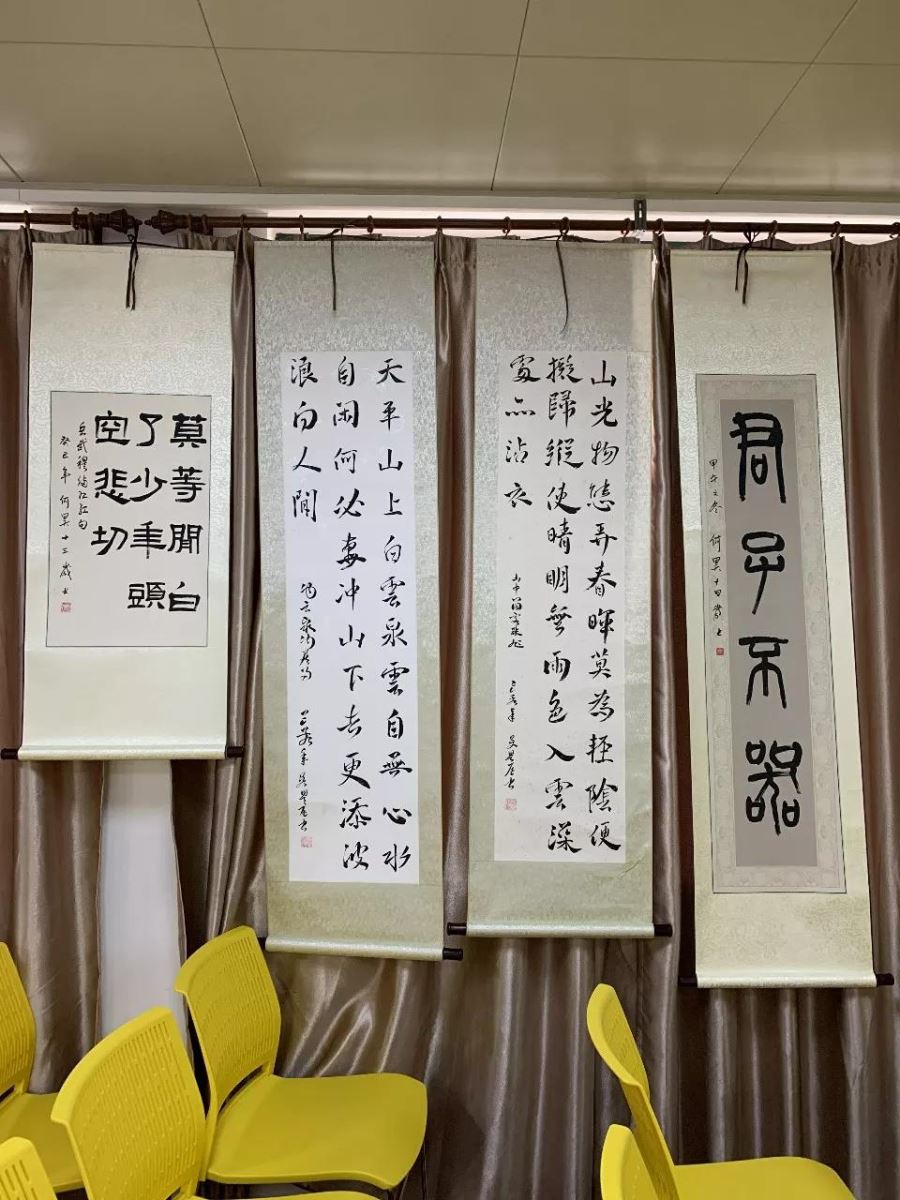 莫等閒白
了少年頭
空悲切
岳武穆滿江紅句
癸巳年 何 十三歲書
天平山上白雲泉雲自無心水
自闲何必奔冲山下去更添波
浪向人間
山光物態弄春暉莫為輕陰便
擬歸縱使晴明無雨色入雲深
處亦沾衣
山中留客張旭
君子不器
甲午之冬 何 十四歲書